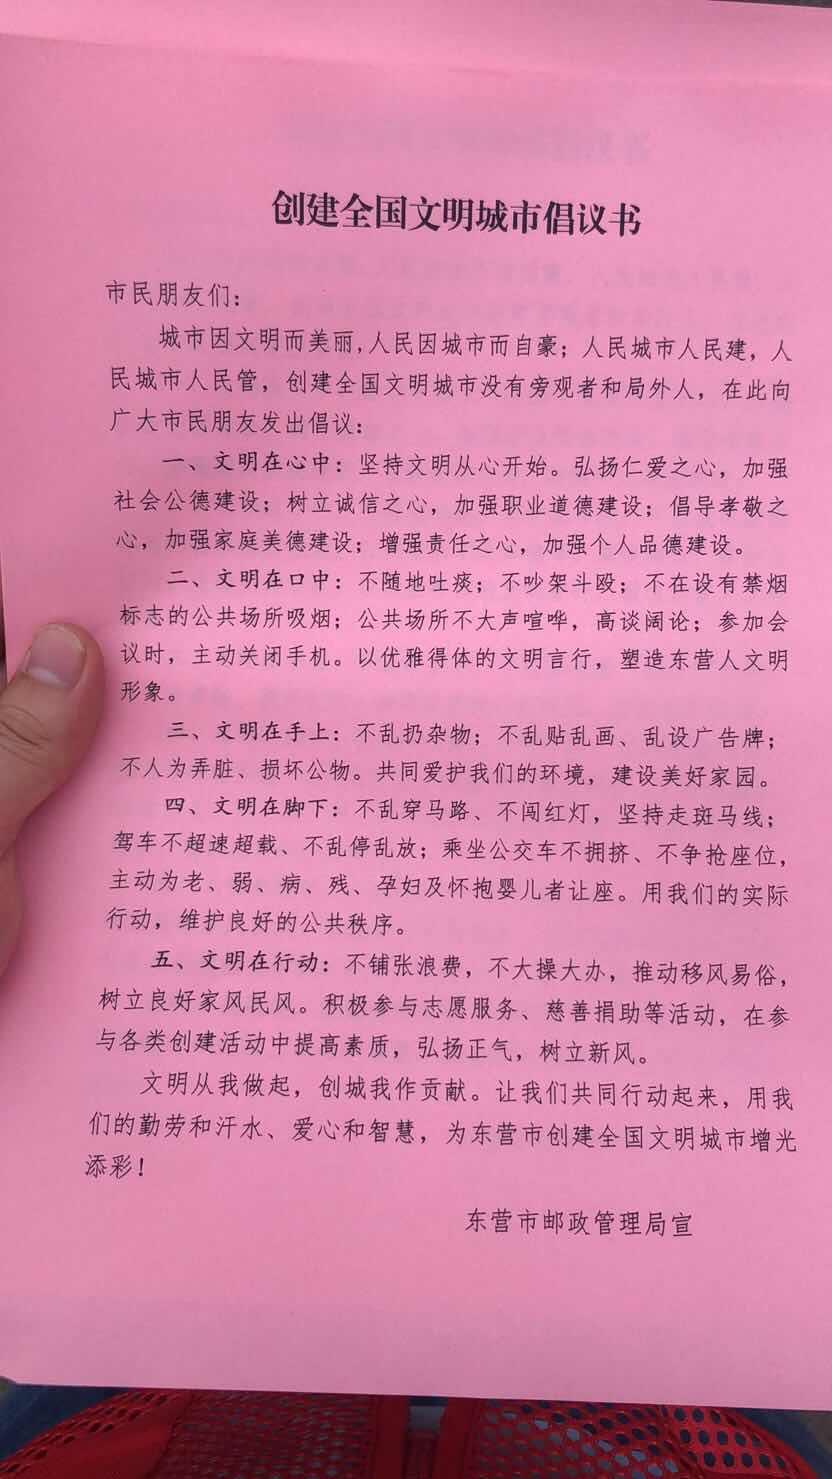 创建全国文明城市倡议书
市民朋友们：
城市因文明而美丽,人民因城市而自豪；人民城市人民建，人
民城市人民管，创建全国文明城市没有旁观者和局外人，在此向
广大市民朋友发出倡议：
一、文明在心中：坚持文明从心开始。弘扬仁爱之心，加强
社会公德建设；树立诚信之心，加强职业道德建设；倡导孝敬之
心，加强家庭美德建设；增强责任之心，加强个人品德建设。
二、文明在口中：不随地吐痰；不吵架斗殴；不在设有禁烟
标志的公共场所吸烟；公共场所不大声喧哗，高谈阔论；参加会
议时，主动关闭手机。以优雅得体的文明言行，塑造东营人文明
形象。
三、文明在手上：不乱扔杂物；不乱贴乱画、乱设广告牌；
不人为弄脏、损坏公物。共同爱护我们的环境，建设美好家园。
四、文明在脚下：不乱穿马路、不闯红灯，坚持走斑马线；
驾车不超速超载、不乱停乱放；乘坐公交车不拥挤、不争抢座位，
主动为老、弱、病、残、孕妇及怀抱婴儿者让座。用我们的实际
行动，维护良好的公共秩序。
五、文明在行动：不铺张浪费，不大操大办，推动移风易俗，
树立良好家风民风。积极参与志愿服务、慈善捐助等活动，在参
与各类创建活动中提高素质，弘扬正气，树立新风。
文明从我做起，创城我作贡献。让我们共同行动起来，用我
们的勤劳和汗水、爱心和智慧，为东营市创建全国文明城市增光
添彩！
东营市邮政管理局宣